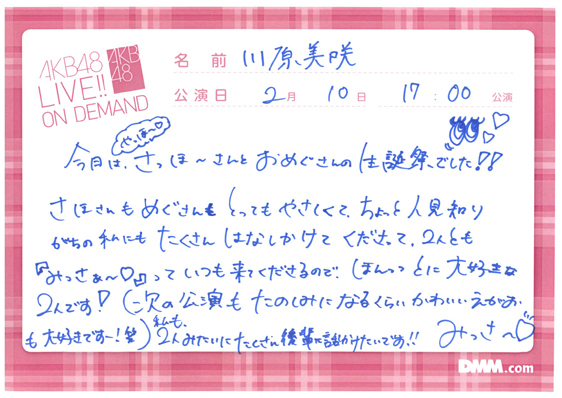 AKB48
LIVE!!
ON DEMAND
AKB
48
名 前 川原美咲
公演日 2月 10日 17:00 公演
やっほ〜
今日は、さっほ〜さんとおめぐさんの生誕祭でした!!
さほさんもめぐさんもとってもやさしくて、ちょっと人見知り
がちの私にもたくさんはなしかけてくださって、2人とも
『みっさぁ〜♡』っていつも来てくださるので、ほんっっとに大好きな
2人です! (次の公演もたのしみになるくらいかわいいえがお
も大好きです〜!笑) 私も、2人みたいにたくさん後輩に話かけたいです!! みっさ〜♡
DMM.com